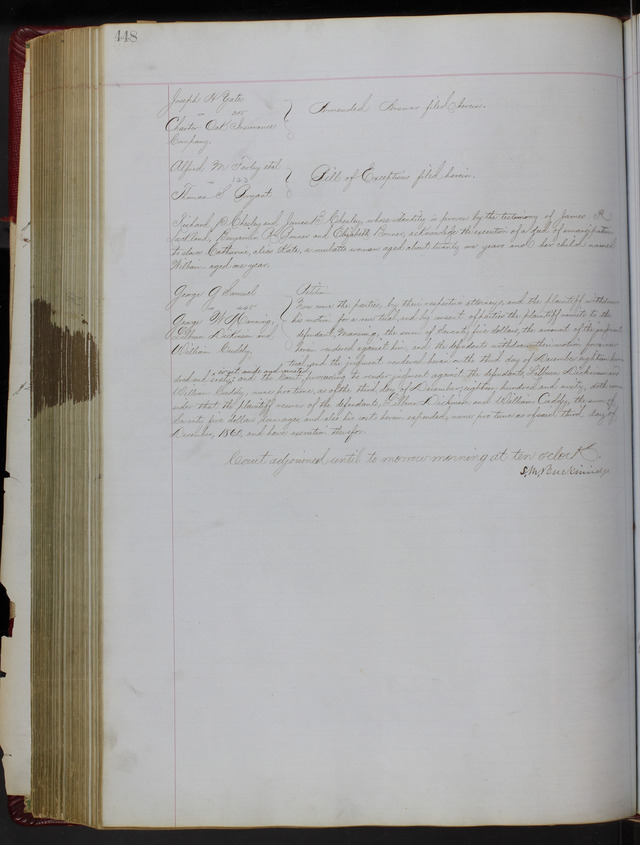 448
Joseph H Yates
vs
Charter Oak Insurance
Company.
Amended Answer filed herein.
Alfred M
vs
Thomas S. Bryant
Bill of Exceptions filed herein.
Richard P. Chesley and James P. Chesley, whose identity is proven by the testimony of James R
and Elizabeth acknowledge the execution of a deed of emancipation
to slave Catharine, alias Kate, a mulatto woman aged about twenty one years and her child named
William aged one year.
George G
vs
George W Manning,
Dickinson and
William Cuddy.
Petition
Now come the parties, by their respective attorneys, and the plaintiff withdraws
his motion for a new trial, and by consent of parties the plaintiff remits to the
defendant, Manning, the sum of twenty five dollars, the amount of the judgment
herein rendered against him, and the defendants withdraw their motion
and the judgment rendered herein on the third day of December eighteen hun-
dred and sixty, is set aside and vacated and the Court, proceeding to render judgment against the defendants, Dickinson and
William Cuddy, nunc pro tunc, as of the third day of December, eighteen hundred and sixty, doth con-
sider that the plaintiff recover of the defendants, Dickinson and William Cuddy, the sum of
twenty five dollars damages and also his costs herein expended, nunc pro tunc as of said third day of
December, 1860, and have execution therefor.
Court adjourned until to morrow morning at ten oclock.
S. M. Breckinridge